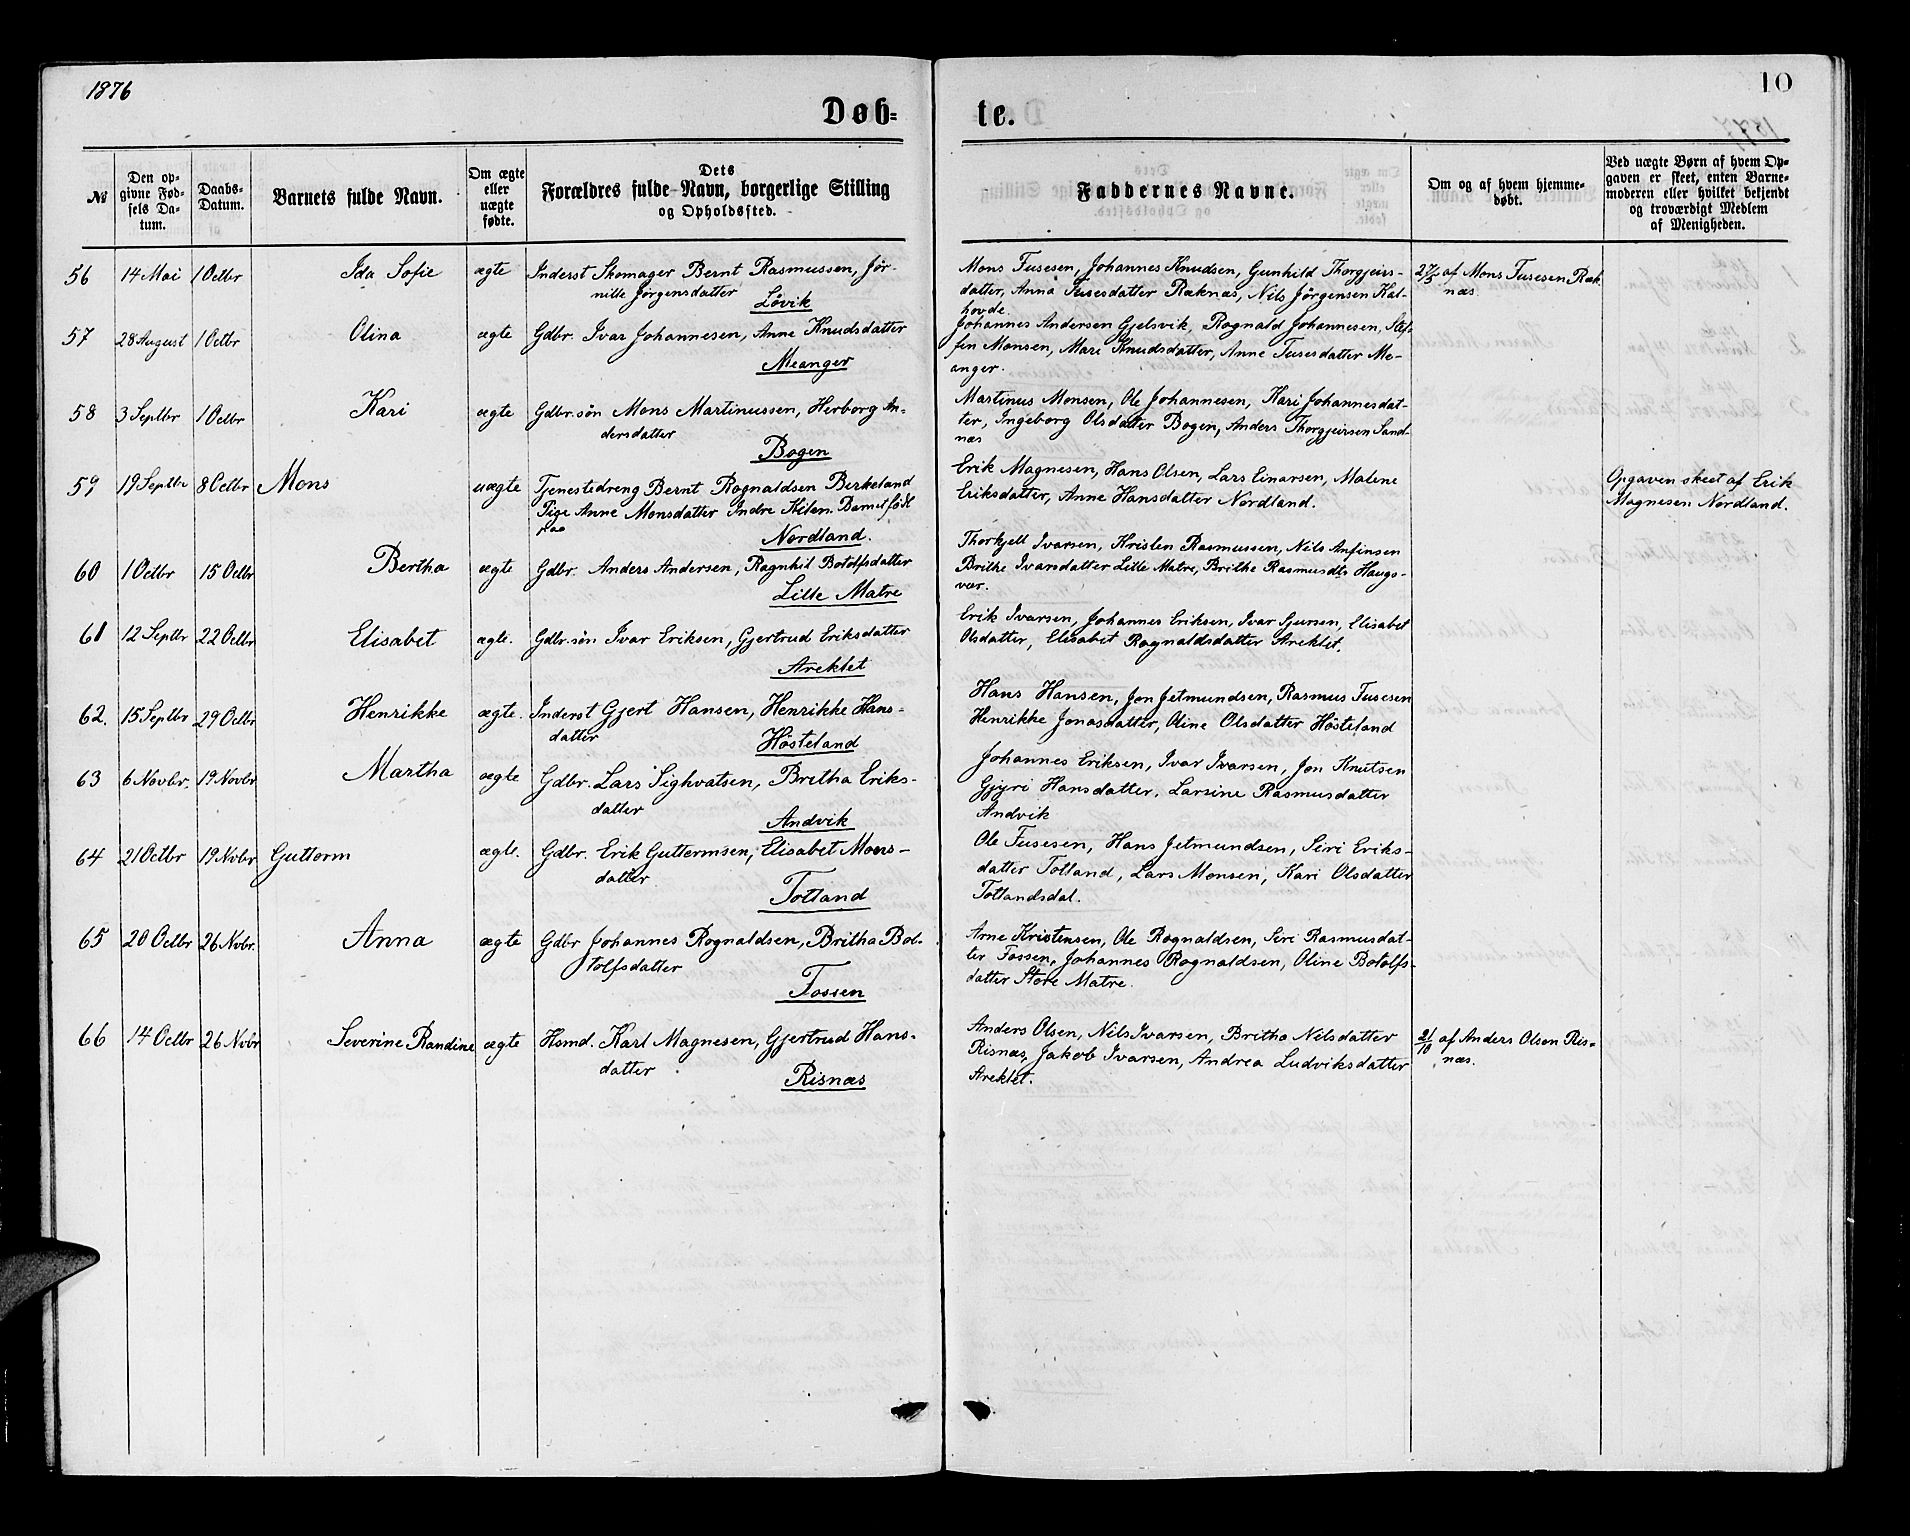 1876
10
Døb=
te.
№
Den op-
givne Fød-
sels Da-
tum.
Daabs-
Datum.
Barnets fulde Navn.
Om ægte
eller
uægte
fødte.
Dets
Forældres fulde Navn, borgerlige Stilling
og Opholdssted.
Faddernes Navne.
Om og af hvem hjemme-
døbt.
Ved uægte Børn af hvem Op-
gaven er skeet, enten Barne-
moderen eller hvilket bekjendt
og troværdigt Medlem
af Menigheden.
56 14 Mai 1 Octbr Ida Sofie ægte Inderst Skomager Bernt Rasmussen, Jør-
nille Jørgensdatter
Løvik
Mons Fusesen, Johannes Knudsen, Gunhild Thorgjeirs-
datter, Anna Fusesdatter Ræknæs, Nils Jørgensen Kal-
hovde.
27/5 af Mons Fusesen Ræk
næs
57 28 August 1 Octbr Olina ægte Gdbr. Ivar Johannesen, Anne Knudsdatter
Meanger
Johannes Andersen Gjelsvik, Rognald Johannesen, Stef-
fen Monsen, Mari Knudsdatter, Anne Fusesdatter Me-
anger.
58 3 Septbr 1 Octbr Kari ægte Gdbr. søn Mons Martinussen, Herborg An-
dersdatter
Bogen
Martinus Monsen, Ole Johannesen, Kari Johannesdat-
ter, Ingeborg Olsdatter Bogen, Anders Thorgjeirsen Sand-
næs
59 19 Septbr 8 Octbr Mons uægte Tjenestedreng Bernt Rognaldsen Birkeland
Pige Anne Monsdatter Indre Kilen. Barnet født
paa
Nordland.
Erik Magnesen, Hans Olsen, Lars Einarsen, Malene
Eriksdatter, Anne Hansdatter Nordland.
Opgaven skeet af Erik
Magnesen Nordland.
60 1 Octbr 15 Octbr Bertha ægte Gdbr. Anders Andersen, Ragnhil Botolfsdatter
Lille Matre
Thorkjell Ivarsen, Kristen Rasmussen, Nils Anfinsen
Brithe Ivarsdatter Lille Matre, Brithe Rasmusdtr Haugs-
vær.
61 12 Septbr 22 Octbr Elisabet ægte. Gdbr. søn Ivar Eriksen, Gjertrud Eriksdatter
Areklet
Erik Ivarsen, Johannes Eriksen, Ivar Sjursen, Elisabet
Olsdatter, Elisabet Rognaldsdatter Areklet.
62. 15 Septbr 29 Octbr Henrikke ægte. Inderst Gjert Hansen, Henrikke Hans-
datter
Høsteland
Hans Hansen, Jon Jetmundsen, Rasmus Fusesen
Henrikke Jonasdatter, Oline Olsdatter Høsteland
63 6 Novbr. 19 Novbr Martha ægte Gdbr. Lars Sighvatsen, Britha Eriks-
datter
Andvik
Johannes Eriksen, Ivar Ivarsen, Jon Knutsen
Gjyri Hansdatter, Larsine Rasmusdatter
Andvik
64 21 Octbr 19 Nvbr Guttorm ægte. Gdbr. Erik Guttormsen, Elisabet Mons-
datter
Totland
Ole Fusesen, Hans Jetmundsen, Seiri Eriks-
datter Totland, Lars Monsen, Kari Olsdatter
Totlandsdal.
65 20 Octbr 26 Nvbr. Anna ægte Gdbr Johannes Rognaldsen, Britha Bo-
tolfsdatter
Fossen
Arne Kristensen, Ole Rognaldsen, Seri Rasmusdat-
ter Fossen, Johannes Rognaldsen, Oline Botolfs-
datter Store Matre.
66 14 Octbr 26 Nvbr Severine Randine ægte Hsmd. Karl Magnesen, Gjertrud Hans-
datter
Risnæs
Anders Olsen, Nils Ivarsen, Britha Nilsdatter
Risnæs, Jakob Ivarsen, Andrea Ludviksdatter
Areklet.
21/10 af Anders Olsen Ris-
næs.